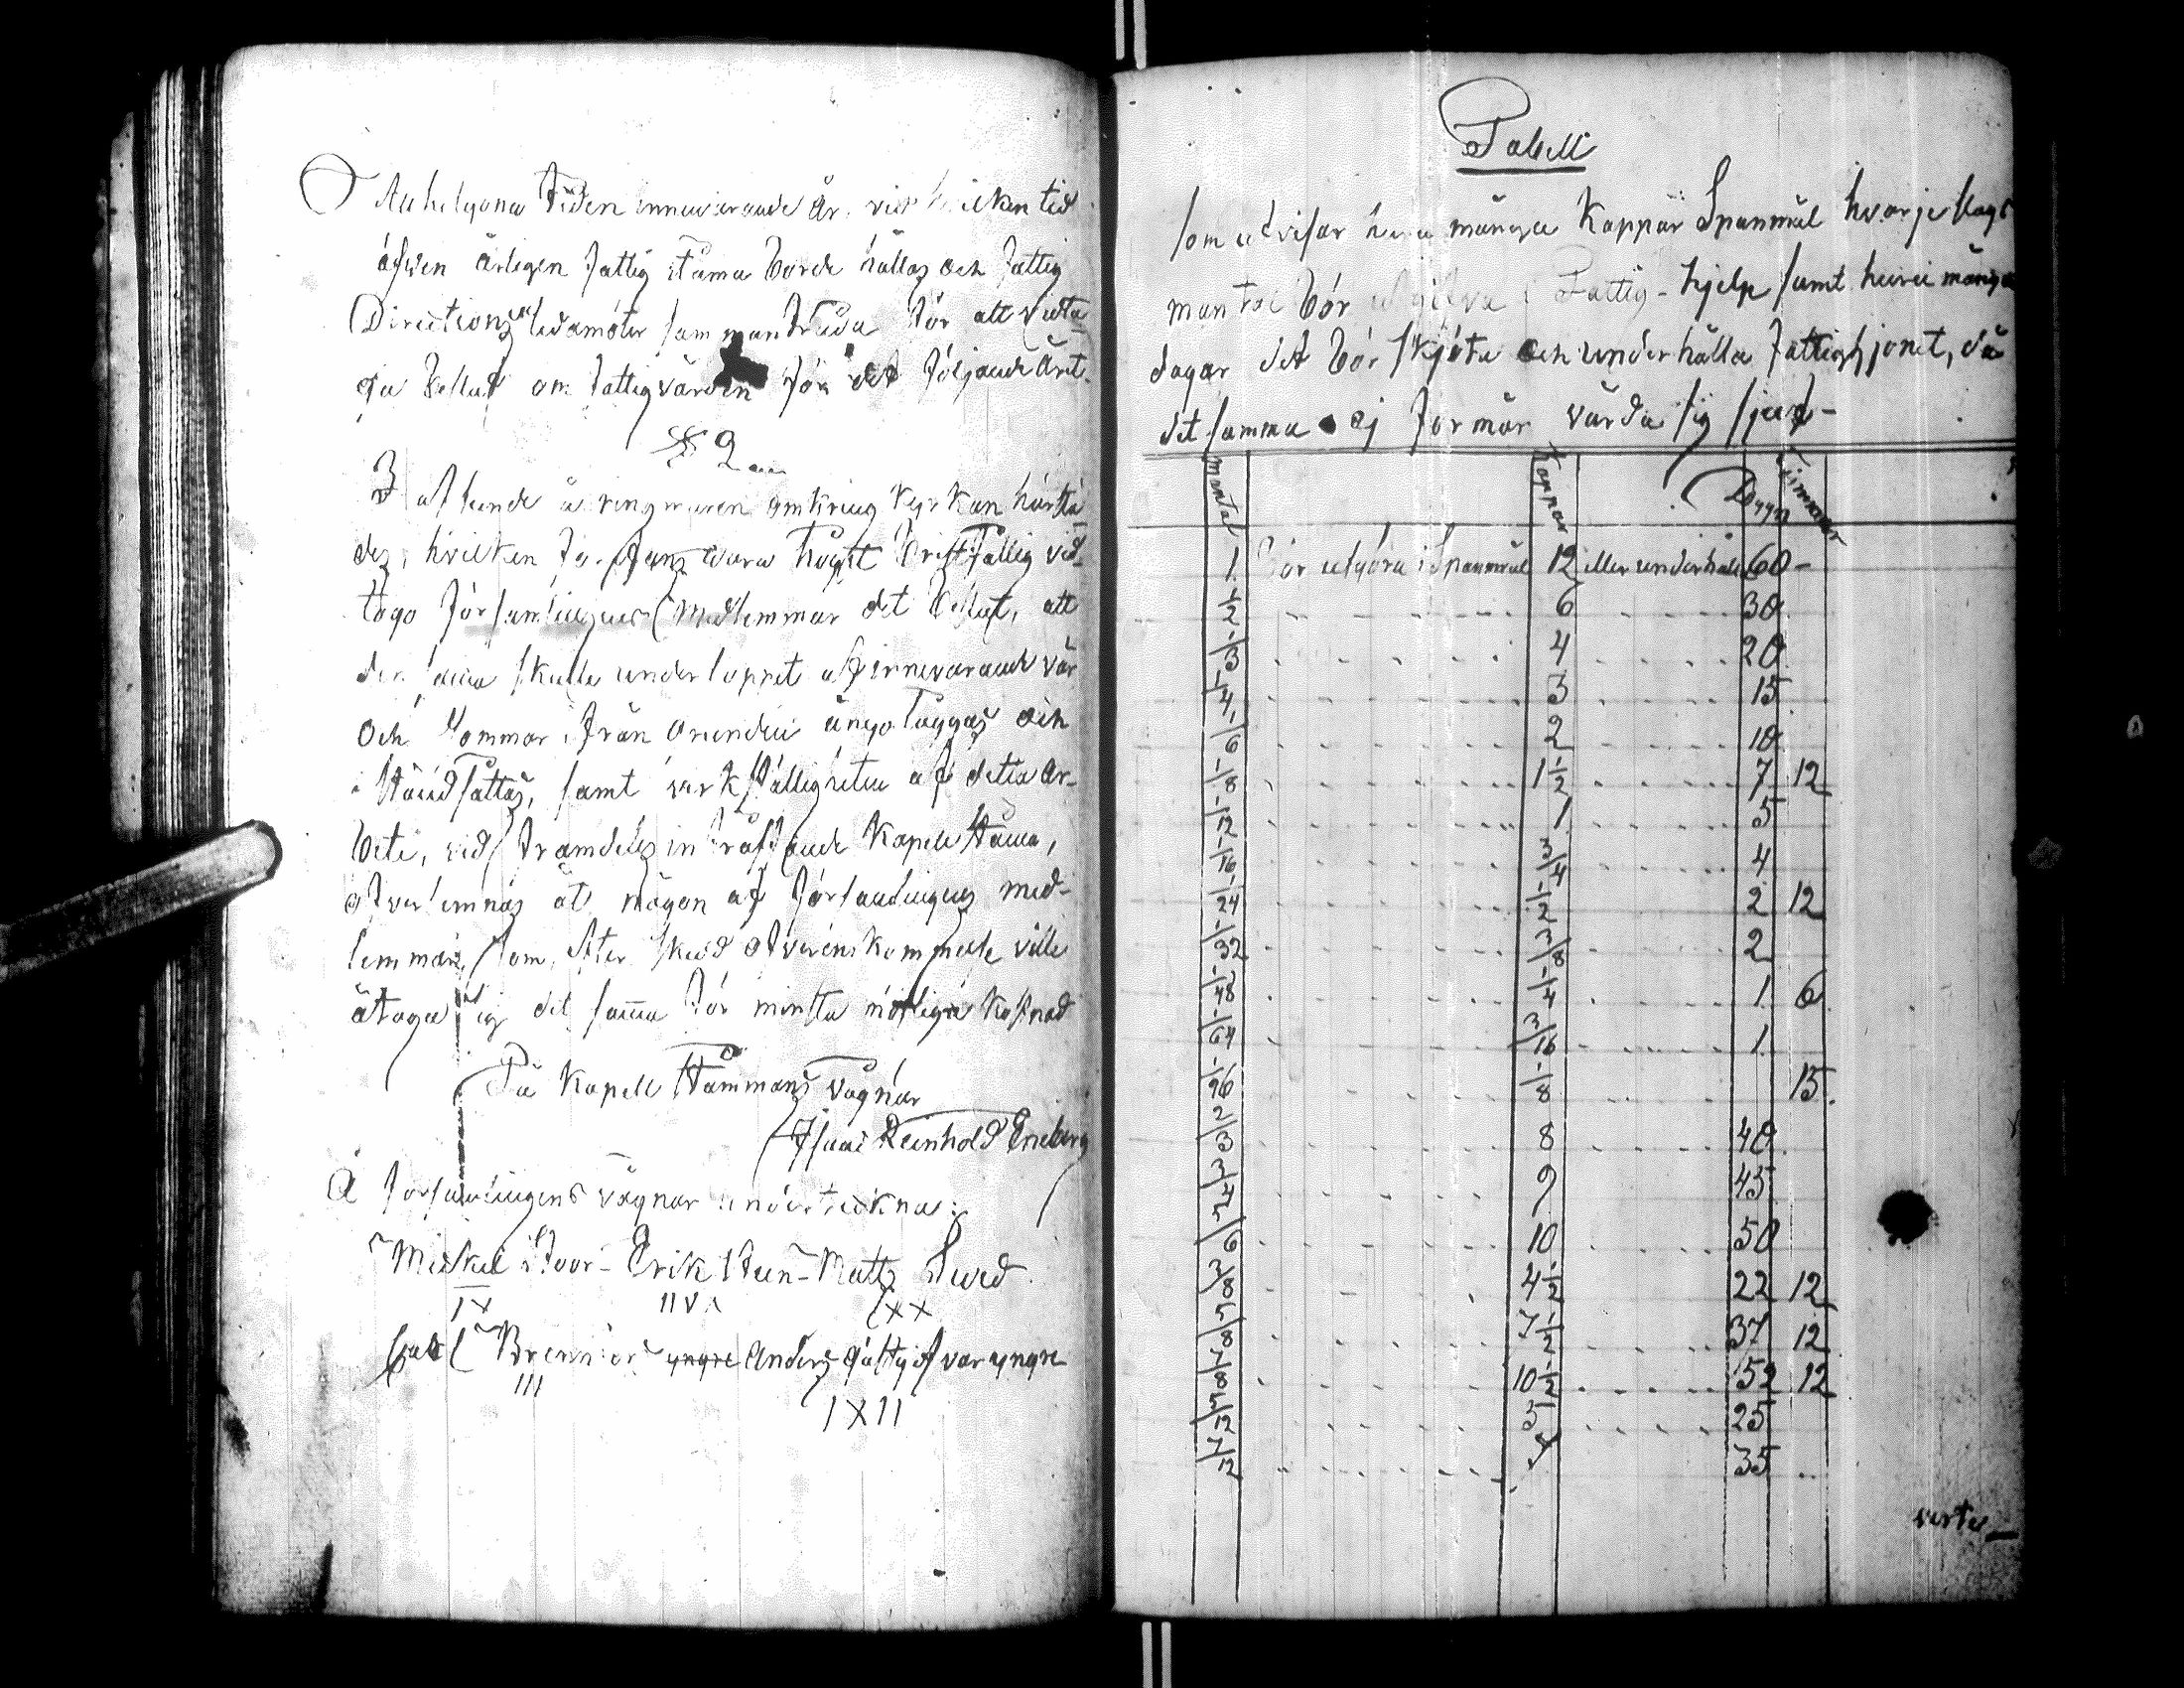 Allhelgona tiden innevarande år, vid hvilken tid
äfven årligen Fattigstäma borde hållas och Fattig
Directions Ledamöter sammanträda för att vidta
ga beslut om fattigvården för det följande året.
§ 2
I afseende å ringmuren omkring kyrkan härstä
des, hvilken fans vara högst bristfällig vid-
togo församlingens Medlemmar det beslut, att
den skulle under loppet af innevarande vår
och Sommar ifrån grunden ånyo läggas och
i ståndsättas, samt verkställigheten af detta ar-
bete, vid framdeles inträffande Kapellstäma,
öfverlemnas åt någon af församlingens med-
lemmar, som, efter skedd öfverenskommelse ville
åtaga sig det samma för minsta möjliga kostnad
På Kapell Stämmans vägnar
Isaac Reinhold Eneberg
Å församlingens vägnar underteckna:
Mickel Stoor - Erik Steen - Matts Sved
IX IIVΛ XX
Brenner yngre Anders gästgifvar yngre
III
IXII
Tabell
som utvisar huru många Kappar Spanmål hvarje slags
mantal bör utgifva i Fattig-hjelp samt huru många
dagar det bör skjöta och underhålla fattighjonet, då
det samma ej förmår vårda sig sjelf -
Mantal Kappar Dygn Timmar
1 Bör utgöra i Spanmål 12 eller underhåll 60 -
1/2 6 30
1/3 4 20
1/4 3 15
1/6 2 10
1/8 1 1/2 7 12
1/12 1 5
1/16 3/4 4
1/24 1/2 2 12
1/32 3/8 2
1/48 1/4 1 6
1/64 3/16 1
1/96 1/8 15
2/3 8 40
3/4 9 45
5/6 10 50
3/8 4 1/2 22 12
5/8 7 1/2 37 12
7/8 10 1/2 52 12
5/12 5 25
7/12 7 35
verte